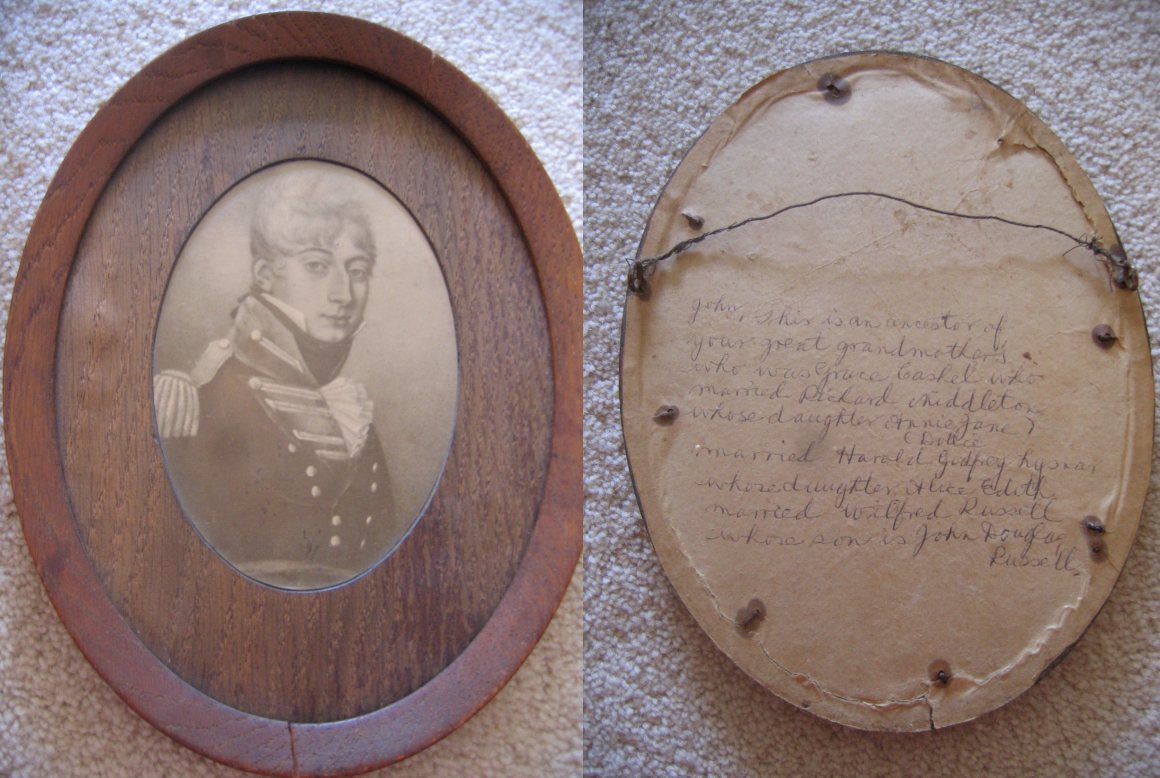 John, This is an ancestor of
your great grandmother's
who was Grace Cashel who
married Richard Middleton
whose daughter Annie Jane
(Dollie
married Harold Godfrey
whose daughter Alice Edith
married Wilfred Russell
whose son is John Douglas
Russell.